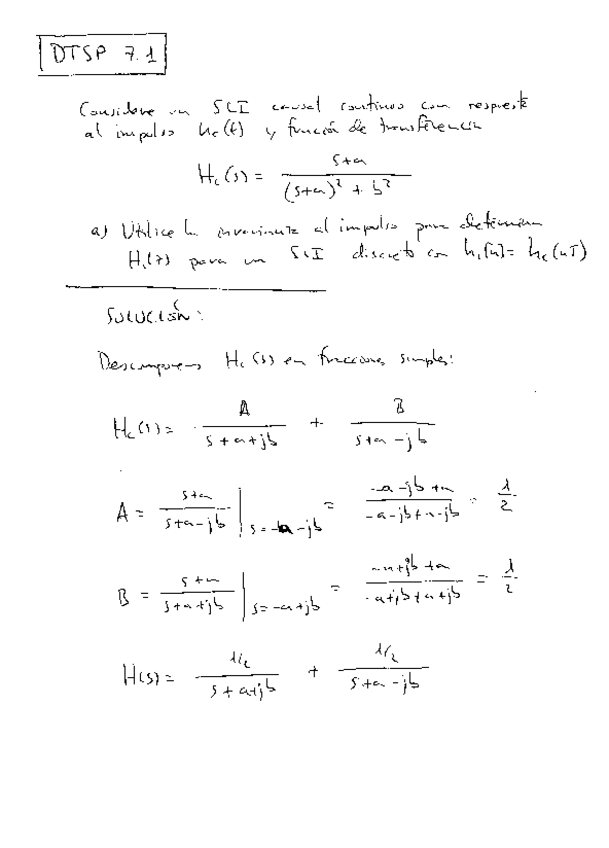 DTSP 7.1
Considere un SLI causal continuo con respuesta
al impulso hc(t) y función de transferencia
Hc(s) = (s+a) / ((s+a)² + b²)
a) Utilice la invarianza al impulso para determinar
H1(z) para un SLI discreto con h1[n] = hc(nT)
SOLUCIÓN:
Descomponemos Hc(s) en fracciones simples:
Hc(s) = A / (s+a+jb) + B / (s+a-jb)
A = (s+a) / (s+a-jb) | s=-a-jb = (-a-jb+a) / (-a-jb+a-jb) = 1/2
B = (s+a) / (s+a+jb) | s=-a+jb = (-a+jb+a) / (-a+jb+a+jb) = 1/2
H(s) = 1/2 / (s+a+jb) + 1/2 / (s+a-jb)